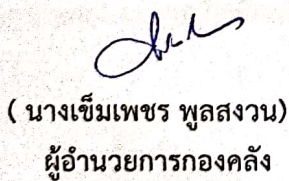 ( นางเข็มเพชร พูลสงวน)
ผู้อำนวยการกองคลัง